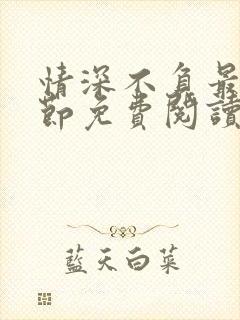 情深不負最
節免費閱讀
藍天白菜